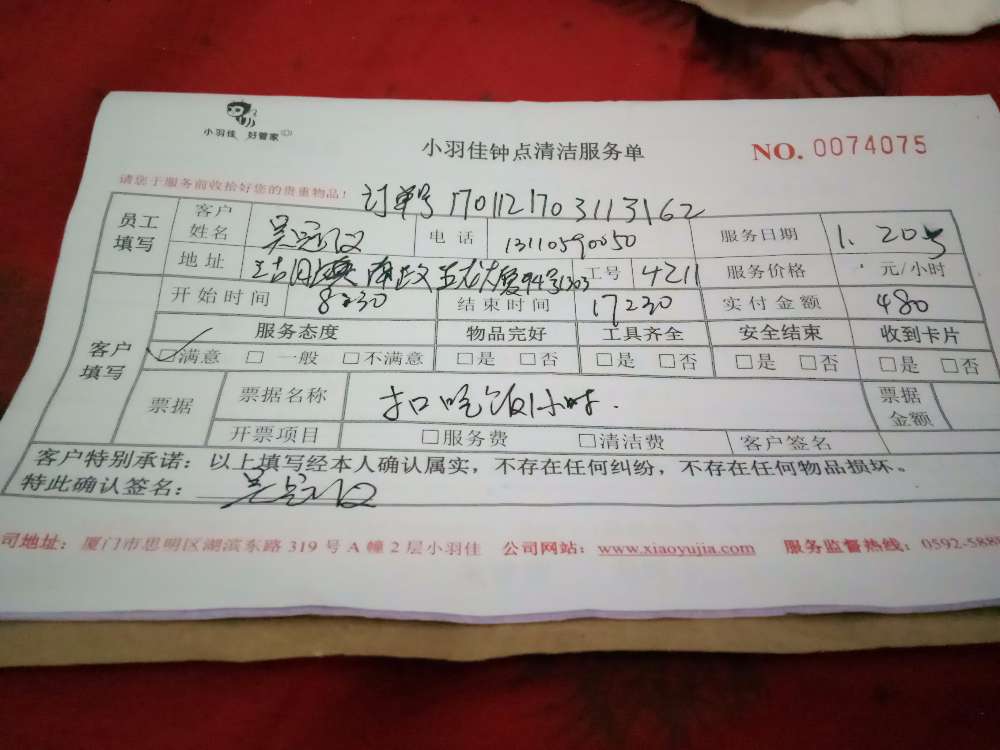 小羽佳 好管家
小羽佳钟点清洁服务单 NO. 0074075
请您于服务前收拾好您的贵重物品! 订单号 1701121703113162
员工填写 客户姓名 吴 电话 13110590050 服务日期 1. 20
地址 94号1303 工号 4211 服务价格 元/小时
开始时间 8:30 结束时间 17:30 实付金额 480
客户填写 服务态度 物品完好 工具齐全 安全结束 收到卡片
☑满意 □一般 □不满意 □是 □否 □是 □否 □是 □否 □是 □否
票据 票据名称 扣吃饭1小时. 票据金额
开票项目 □服务费 □清洁费 客户签名
客户特别承诺:以上填写经本人确认属实,不存在任何纠纷,不存在任何物品损坏。
特此确认签名: 吴
司地址: 厦门市思明区湖滨东路 319 号 A 幢 2 层小羽佳 公司网站: www.xiaoyujia.com 服务监督热线: 0592-588